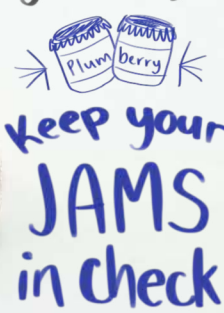 Plum berry
Keep your
JAMS
in check